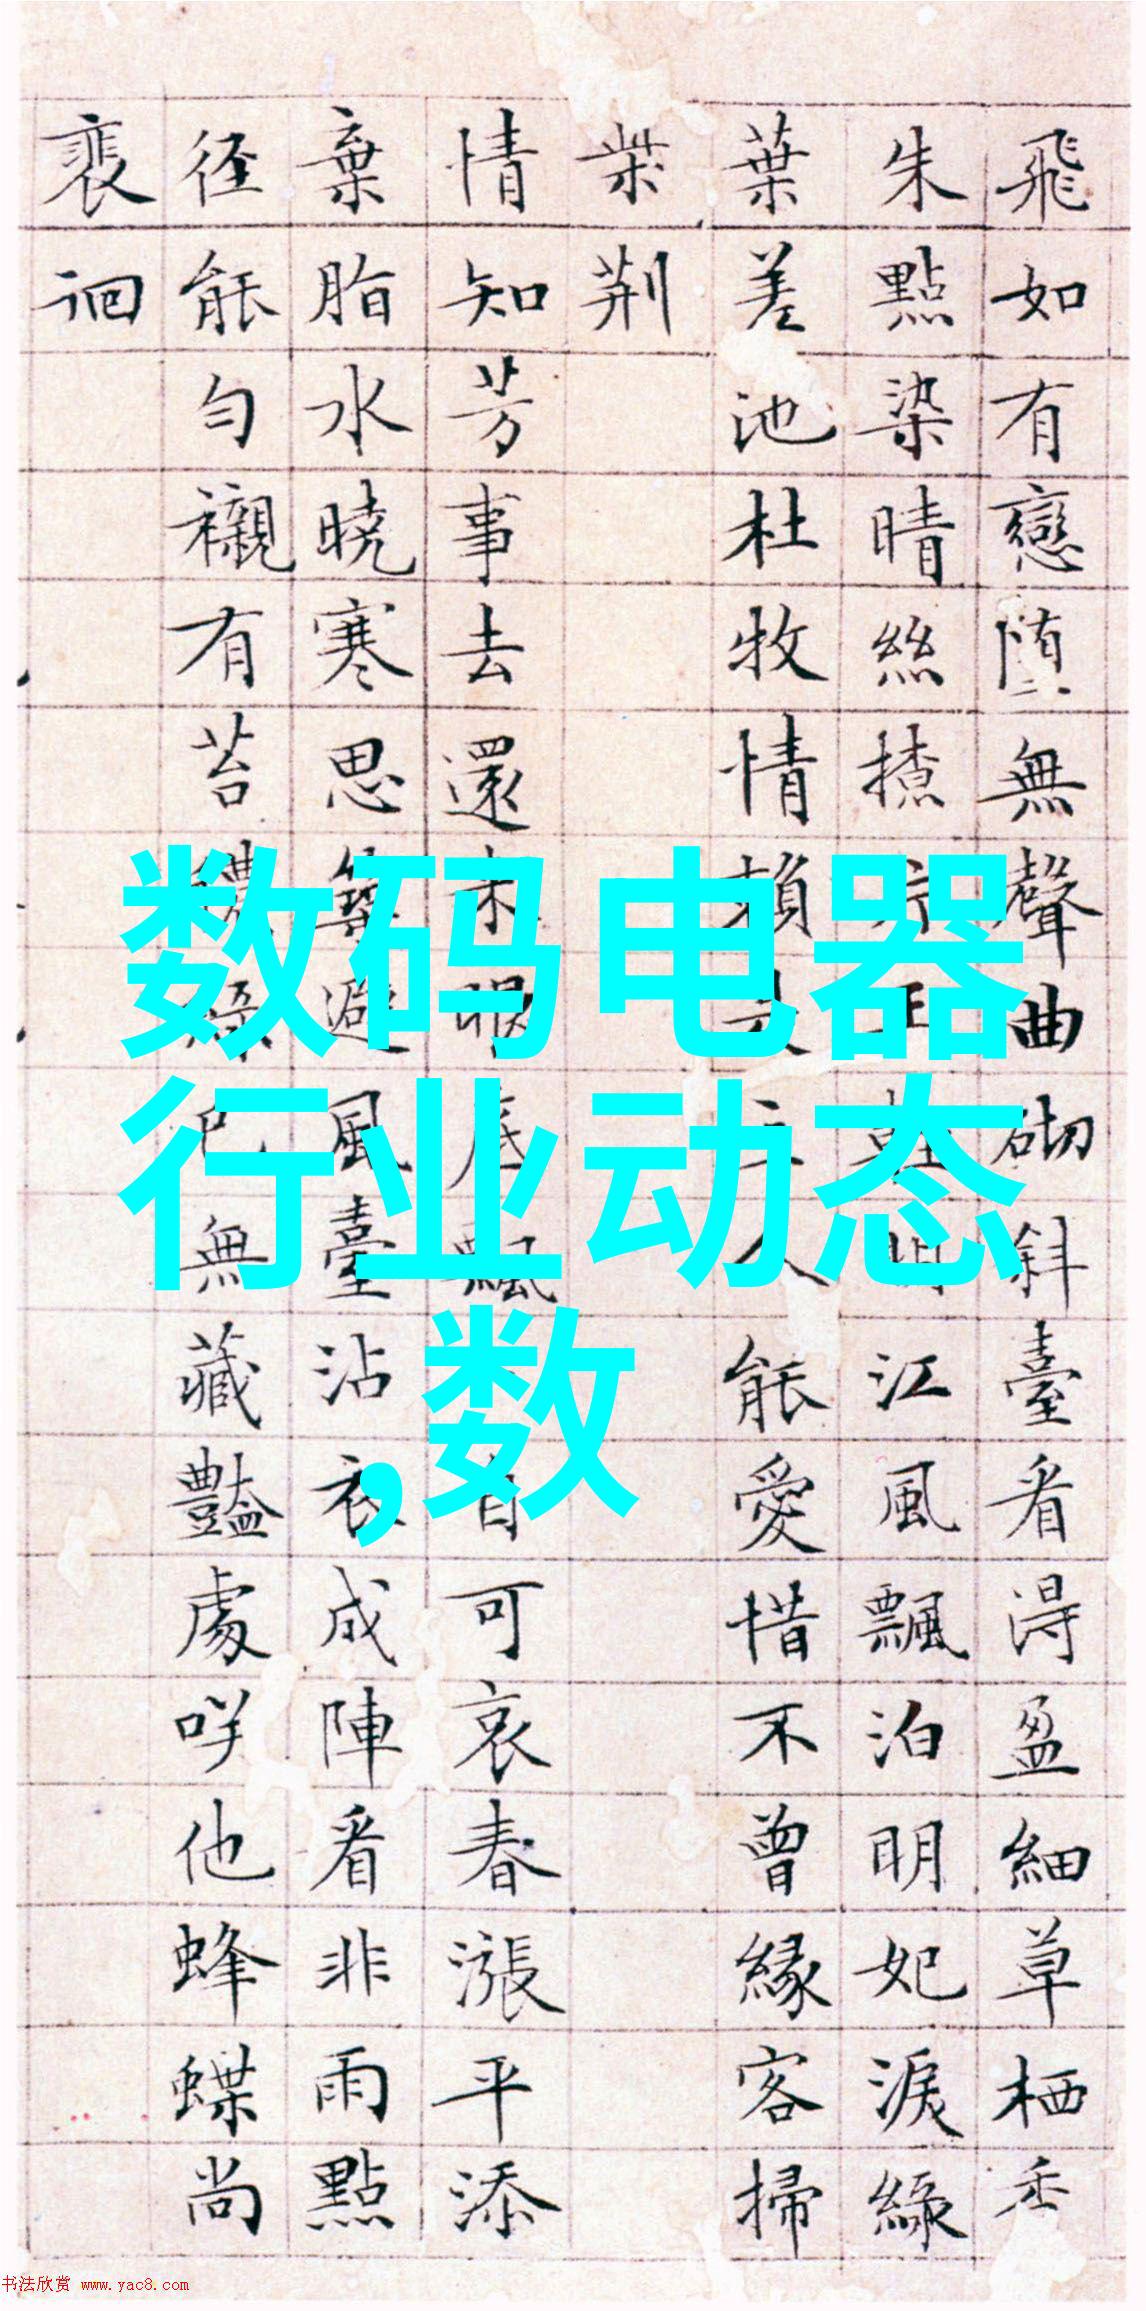 飛如有戀墮無聲曲砌斜臺看淂盈細草栖香
朱點染晴絲
江風飄泊明妃淚綠
葉差池杜牧情
能愛惜不曾緣客掃
柴荆
情知芳事去還未
可哀春漲平添
棄脂水曉寒思
避風臺沾衣成陣看非雨點
径能勻襯有苔
無藏豔處咲他蜂蝶尚
裵徊
数码电器
行业动态
,数
书法欣赏 www.yac8.com